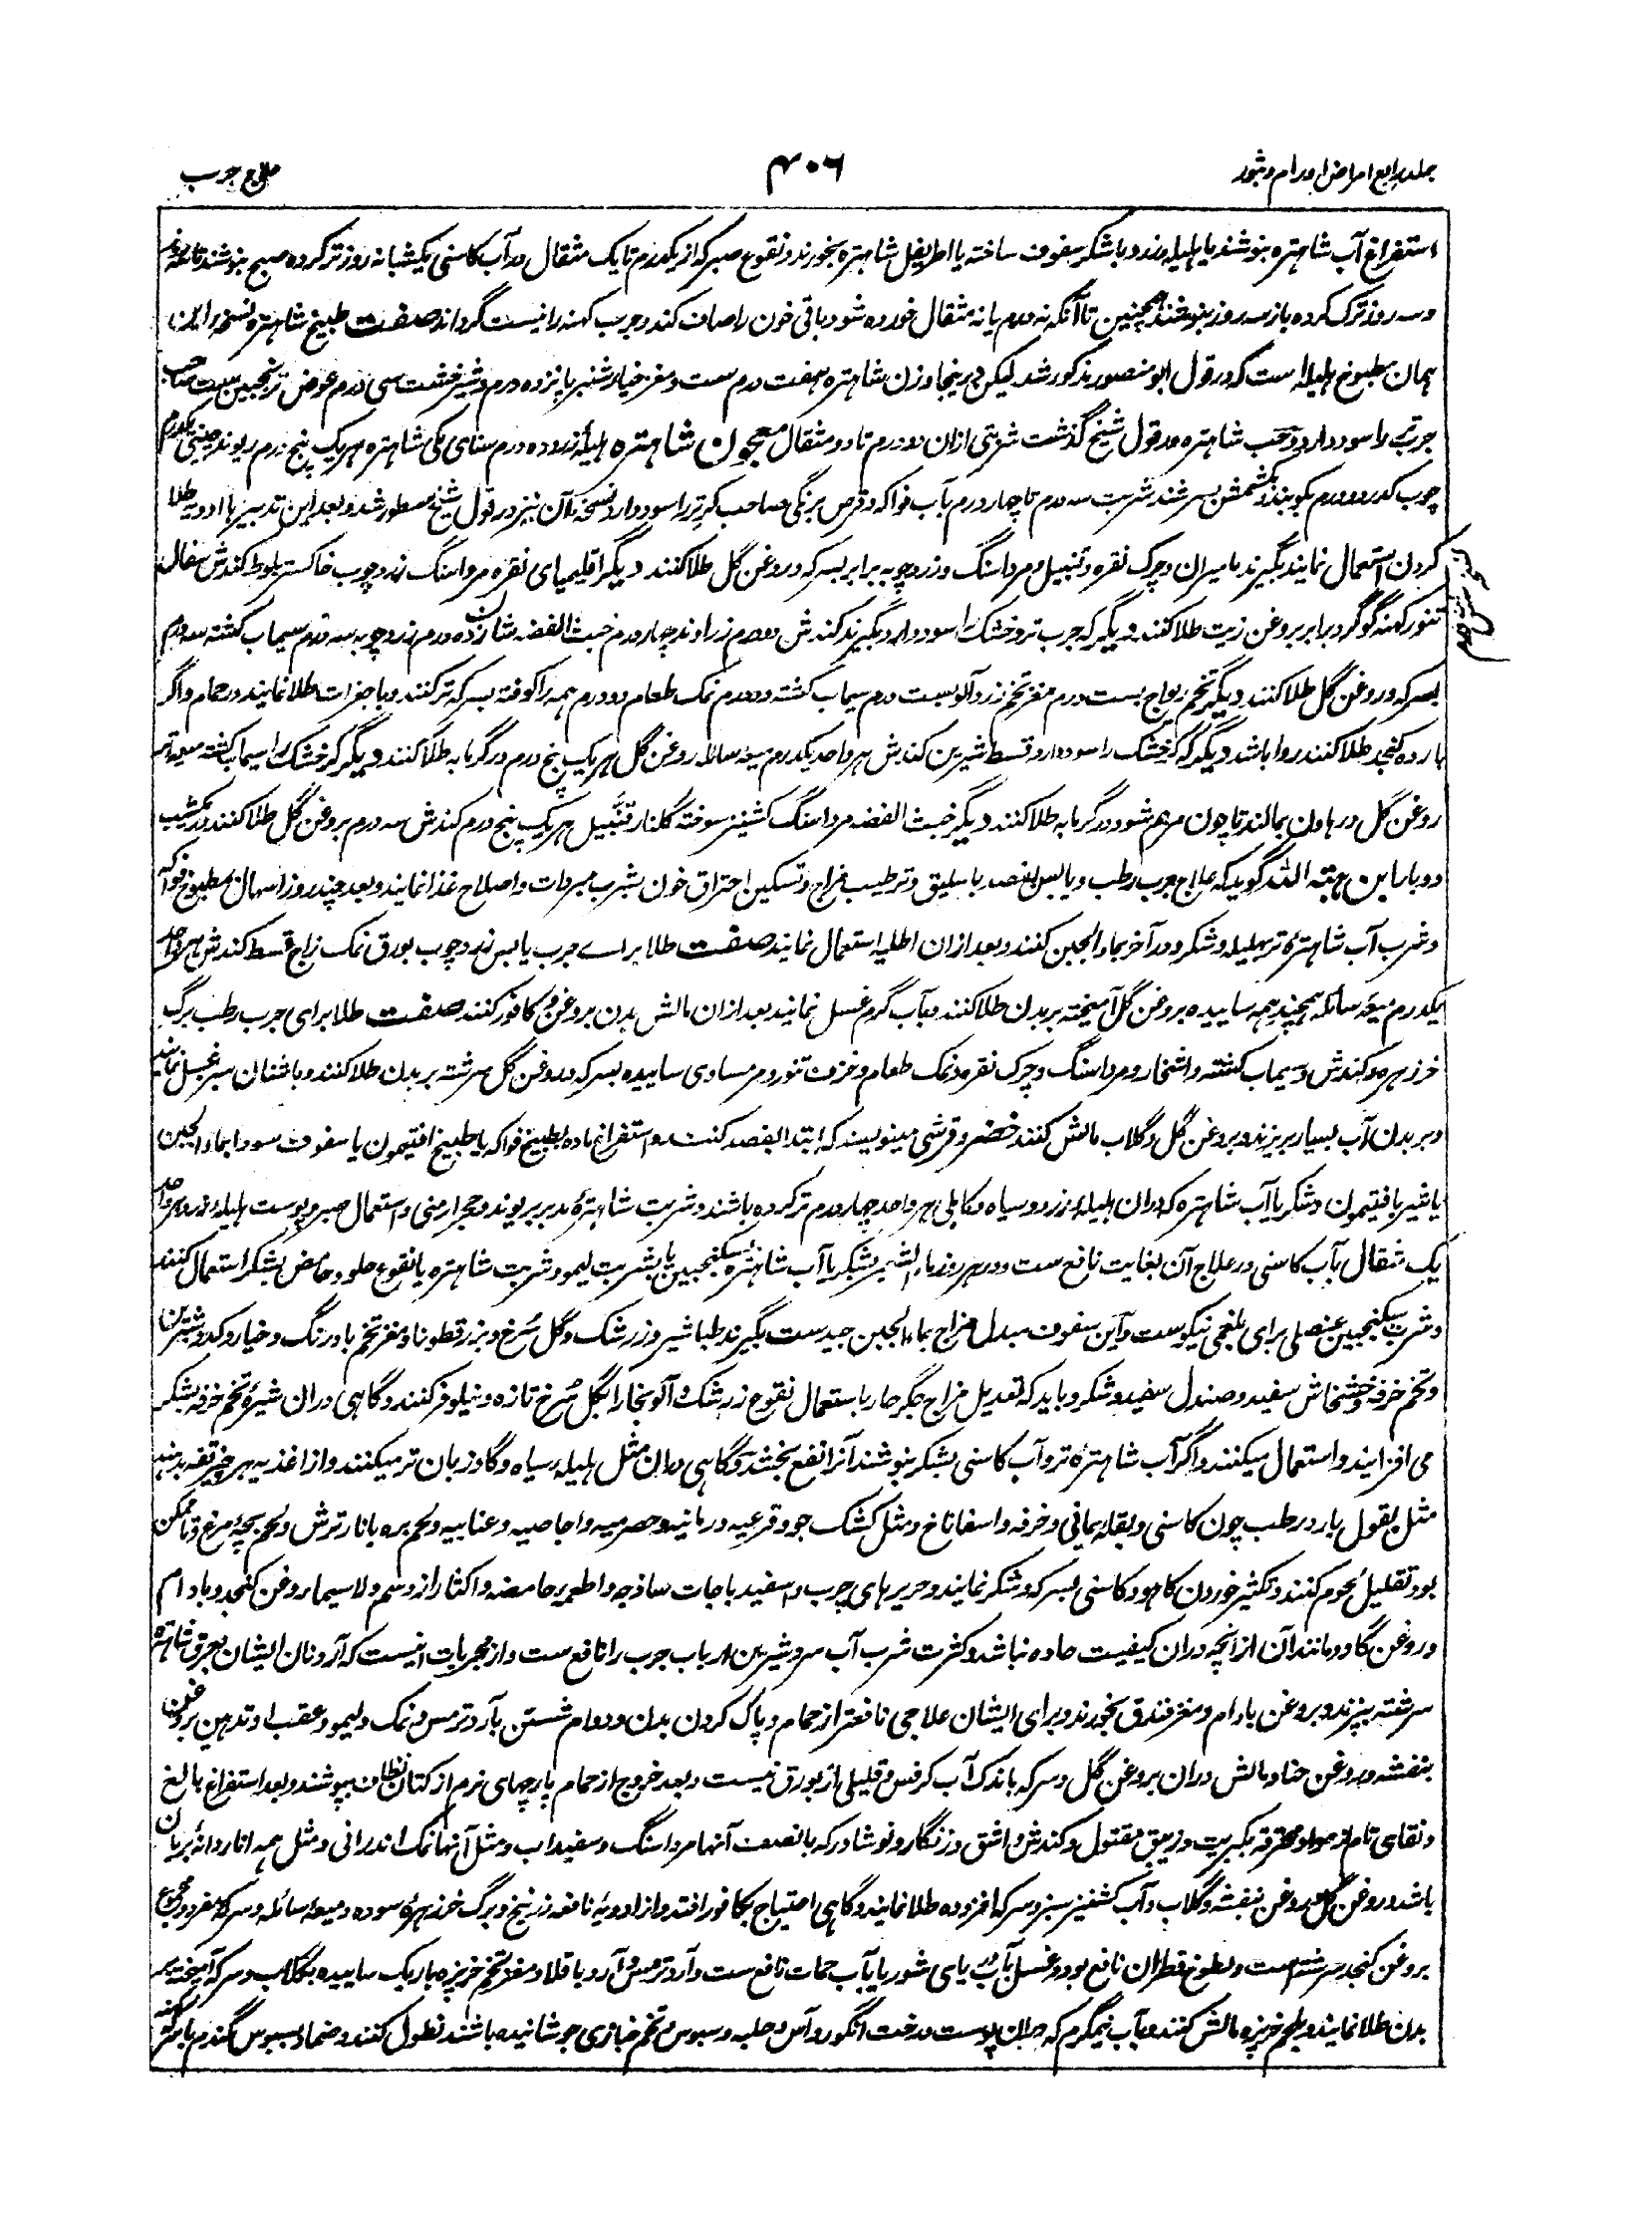 جلد رابع امراض اورام و بثور
۴۰۶
علاج جرب
استفراغ آب شاهتره بنوشند یا هلیله زرد و با شکر سفوف ساخته یا اطریفل شاهتره بخورند و نقوع صبر که از یکدرم تا یک مثقال در آب کاسنی یکشبانه روز تر کرده صبح بنوشند تا سه روز
و سه روز ترک کرده باز سه روز بنوشند همچنین تا آنکه نه درم یا نه مثقال خورده شود باقی خون را صاف کند و جرب کهنه را نیست گرداند صفت طبیخ شاهتره نسخه
همان مطبوخ هلیله است که در قول ابو منصور مذکور شد لیکن درینجا وزن شاهتره هفت درم ست و مغز خیار شنبر پانزده درم و شیرخشت سی درم عوض ترنجبین ست
جرب تر را سود دارد و حب شاهتره در قول شیخ گذشت شربتی ازان دو درم تا دو مثقال معجون شاهتره هلیله زرد ده درم سنای مکی شاهتره هریک پنج درم ریوند چینی یکدرم
چوب کدر دو درم بکوبند و بکشمش بسرشند شربت سه درم تا چهار درم بآب فواکه و قرص برنگی صاحب گرتر را سود دارد نسخهٔ آن نیز در قول شیخ مسطور شد و بعد این تدبیر با ادویه طلا
کردن استعمال نمایند بگیرند مامیران و چرک نقره و قنبیل و مرداسنگ و زردچوبه برابر بسرکه و روغن گل طلا کنند دیگر اقلیمیای نقره مرداسنگ زردچوب خاکستر بلوط کندش سفال
تنور کهنه گوگرد برابر بروغن زیت طلا کنند دیگر که جرب تر و خشک را سود دارد بگیرند کندش دو درم زراوند چهار درم خبث الفضه شانزده درم زردچوبه سه درم سیماب کشته سه درم
بسرکه و روغن گل طلا کنند دیگر تخم ریواج بست درم مغز تخم زردآلو بست درم سیماب کشته دو درم نمک طعام دو درم همه را کوفته بسرکه تر کنند و با جغرات طلا نمایند در حمام و اگر
بارده کنجد طلا کنند روا باشد دیگر که گر خشک را سود دارد قسط شیرین کندش هر واحد یکدرم میعه سائله روغن گل هریک پنج درم در گرمابه طلا کنند دیگر گر خشک را سیماب کشته میعه تر
روغن گل در هاون بمالند تا چون مرهم شود در گرمابه طلا کنند دیگر خبث الفضه مرداسنگ کشنیز سوخته گلنار قنبیل هریک پنج درم کندش سه درم بروغن گل طلا کنند در یکشب
دو بار ابن هبة الله گوید که علاج جرب رطب و یابس بفصد باسلیق و ترطیب مزاج و تسکین احتراق خون بشرب مبردات و اصلاح غذا نمایند و بعد چند روز اسهال بمطبوخ فواکه
و شرب آب شاهتره تر بهلیله و شکر و در آخر بماء الجبن کنند و بعد ازان اطلیه استعمال نمایند صفت طلا برای جرب یابس زردچوب بورق نمک زاج قسط کندش هر واحد
یکدرم میعه سائله همچند همه ساییده بروغن گل آمیخته بر بدن طلا کنند و بآب گرم غسل نمایند بعد ازان مالش بدن بروغن و کافور کنند صفت طلا برای جرب رطب برگ
خرزهره و کندش و سیماب کشته و اشخار و مرداسنگ و چرک نقره و نمک طعام و خزف تنور و مر مساوی ساییده بسرکه و روغن گل سرشته بر بدن طلا کنند و باشنان سبز غسل نمایند
و بر بدن آب بسیار بریزند و بروغن گل و گلاب مالش کنند خضر و قرشی مینویسند که ابتدا بفصد کنند و استفراغ ماده بطبیخ فواکه یا طبیخ افتیمون یا سفوف سودا بماء الجبن
یا شیر بافتیمون و شکر یا آب شاهتره که دران هلیله زرد و سیاه و کابلی هر واحد چهار درم تر کرده باشند و شربت شاهتره مدبر بریوند و حجر ارمنی و استعمال صبر و پوست هلیله زرد هر واحد
یک مثقال بآب کاسنی در علاج آن بغایت نافع ست و در هر روز ماء الشعیر بشکر یا آب شاهتره بسکنجبین یا بشربت لیمو و شربت شاهتره یا نقوع حلو و حامض بشکر استعمال کنند
و شربت سکنجبین عنصلی برای بلغمی نیکوست و این سفوف مبدل مزاج بماء الجبن جیدست بگیرند طباشیر و زرشک و گل سرخ و بزرقطونا و مغز تخم بادرنگ و خیار و کدو شیرین
و تخم خرفه و خشخاش سفید و صندل سفید و شکر و باید که تعدیل مزاج جگر حار باستعمال نقوع زرشک و آلو بخارا بگل سرخ تازه و نیلوفر کنند و گاهی دران شیره تخم خرفه بشکر
می افزایند و استعمال میکنند و اگر آب شاهتره تر و آب کاسنی بشکر بنوشند آنرا نفع بخشد و گاهی دران مثل هلیله سیاه و گاوزبان تر میکنند و از اغذیه هر چیز تفه بدهند
مثل بقول بارد رطب چون کاسنی و بقله یمانی و خرفه و اسفاناخ و مثل کشک جو و قرعیه و رمانیه و حصرمیه و اجاصیه و عنابیه و لحم بره با نار ترش و لحم بچه مرغ و تا ممکن
بود تقلیل لحوم کنند و تکثیر خوردن کاهو و کاسنی بسرکه و شکر نمایند و حریرهای چرب و اسفیدباجات ساذجه و اطعمه حامضه و اکثار از دسم و لا سیما روغن کنجد و بادام
و روغن گاو و مانند آن از آنچه دران کیفیت حاده نباشد و کثرت شرب آب سرد شیرین ارباب جرب را نافع ست و از مجربات اینست که آرد نان ایشان بعرق شاهتره
سرشته بپزند و بروغن بادام و مغز فندق بخورند و برای ایشان علاجی نافعتر از حمام و پاک کردن بدن و دوام شستن بآرد ترمس و نمک و لیمو و عقب او تدهین بروغن
بنفشه و روغن حنا و مالش دران بروغن گل و سرکه باندک آب کرفس و قلیلی از بورق نیست و بعد خروج از حمام پارچهای نرم از کتان نظاف بپوشند و بعد استفراغ بالغ
و نقای تام از مواد محترقه بکبریت و زیبق مقتول و کندش و اشق و زنگار و نوشادر که با نصف آنها مرداسنگ و سفیداب و مثل آنها نمک اندرانی و مثل همه انار دانه بریان
باشد و روغن گل و روغن بنفشه و گلاب و آب کشنیز سبز و سرکه افزوده طلا نمایند و گاهی احتیاج بکافور افتد و از ادویه نافعه زرنیخ و برگ خرزهره سوده و میعه سائله و سرکه مفرد و مجموع
بروغن کنجد سرشته است و لطوخ قطران نافع بود و غسل بآب دریای شور یا بآب حمات نافع ست و آرد ترمس و آرد باقلا و مغز تخم خرپزه باریک ساییده بگلاب و سرکه آمیخته بر
بدن طلا نمایند و بلحم خرپزه مالش کنند و بآب نیمگرم که دران پوست درخت انگور و آس و حلبه و سبوس و تخم خبازی جوشانیده باشند نطول کنند و ضماد بسبوس گندم با سرکه